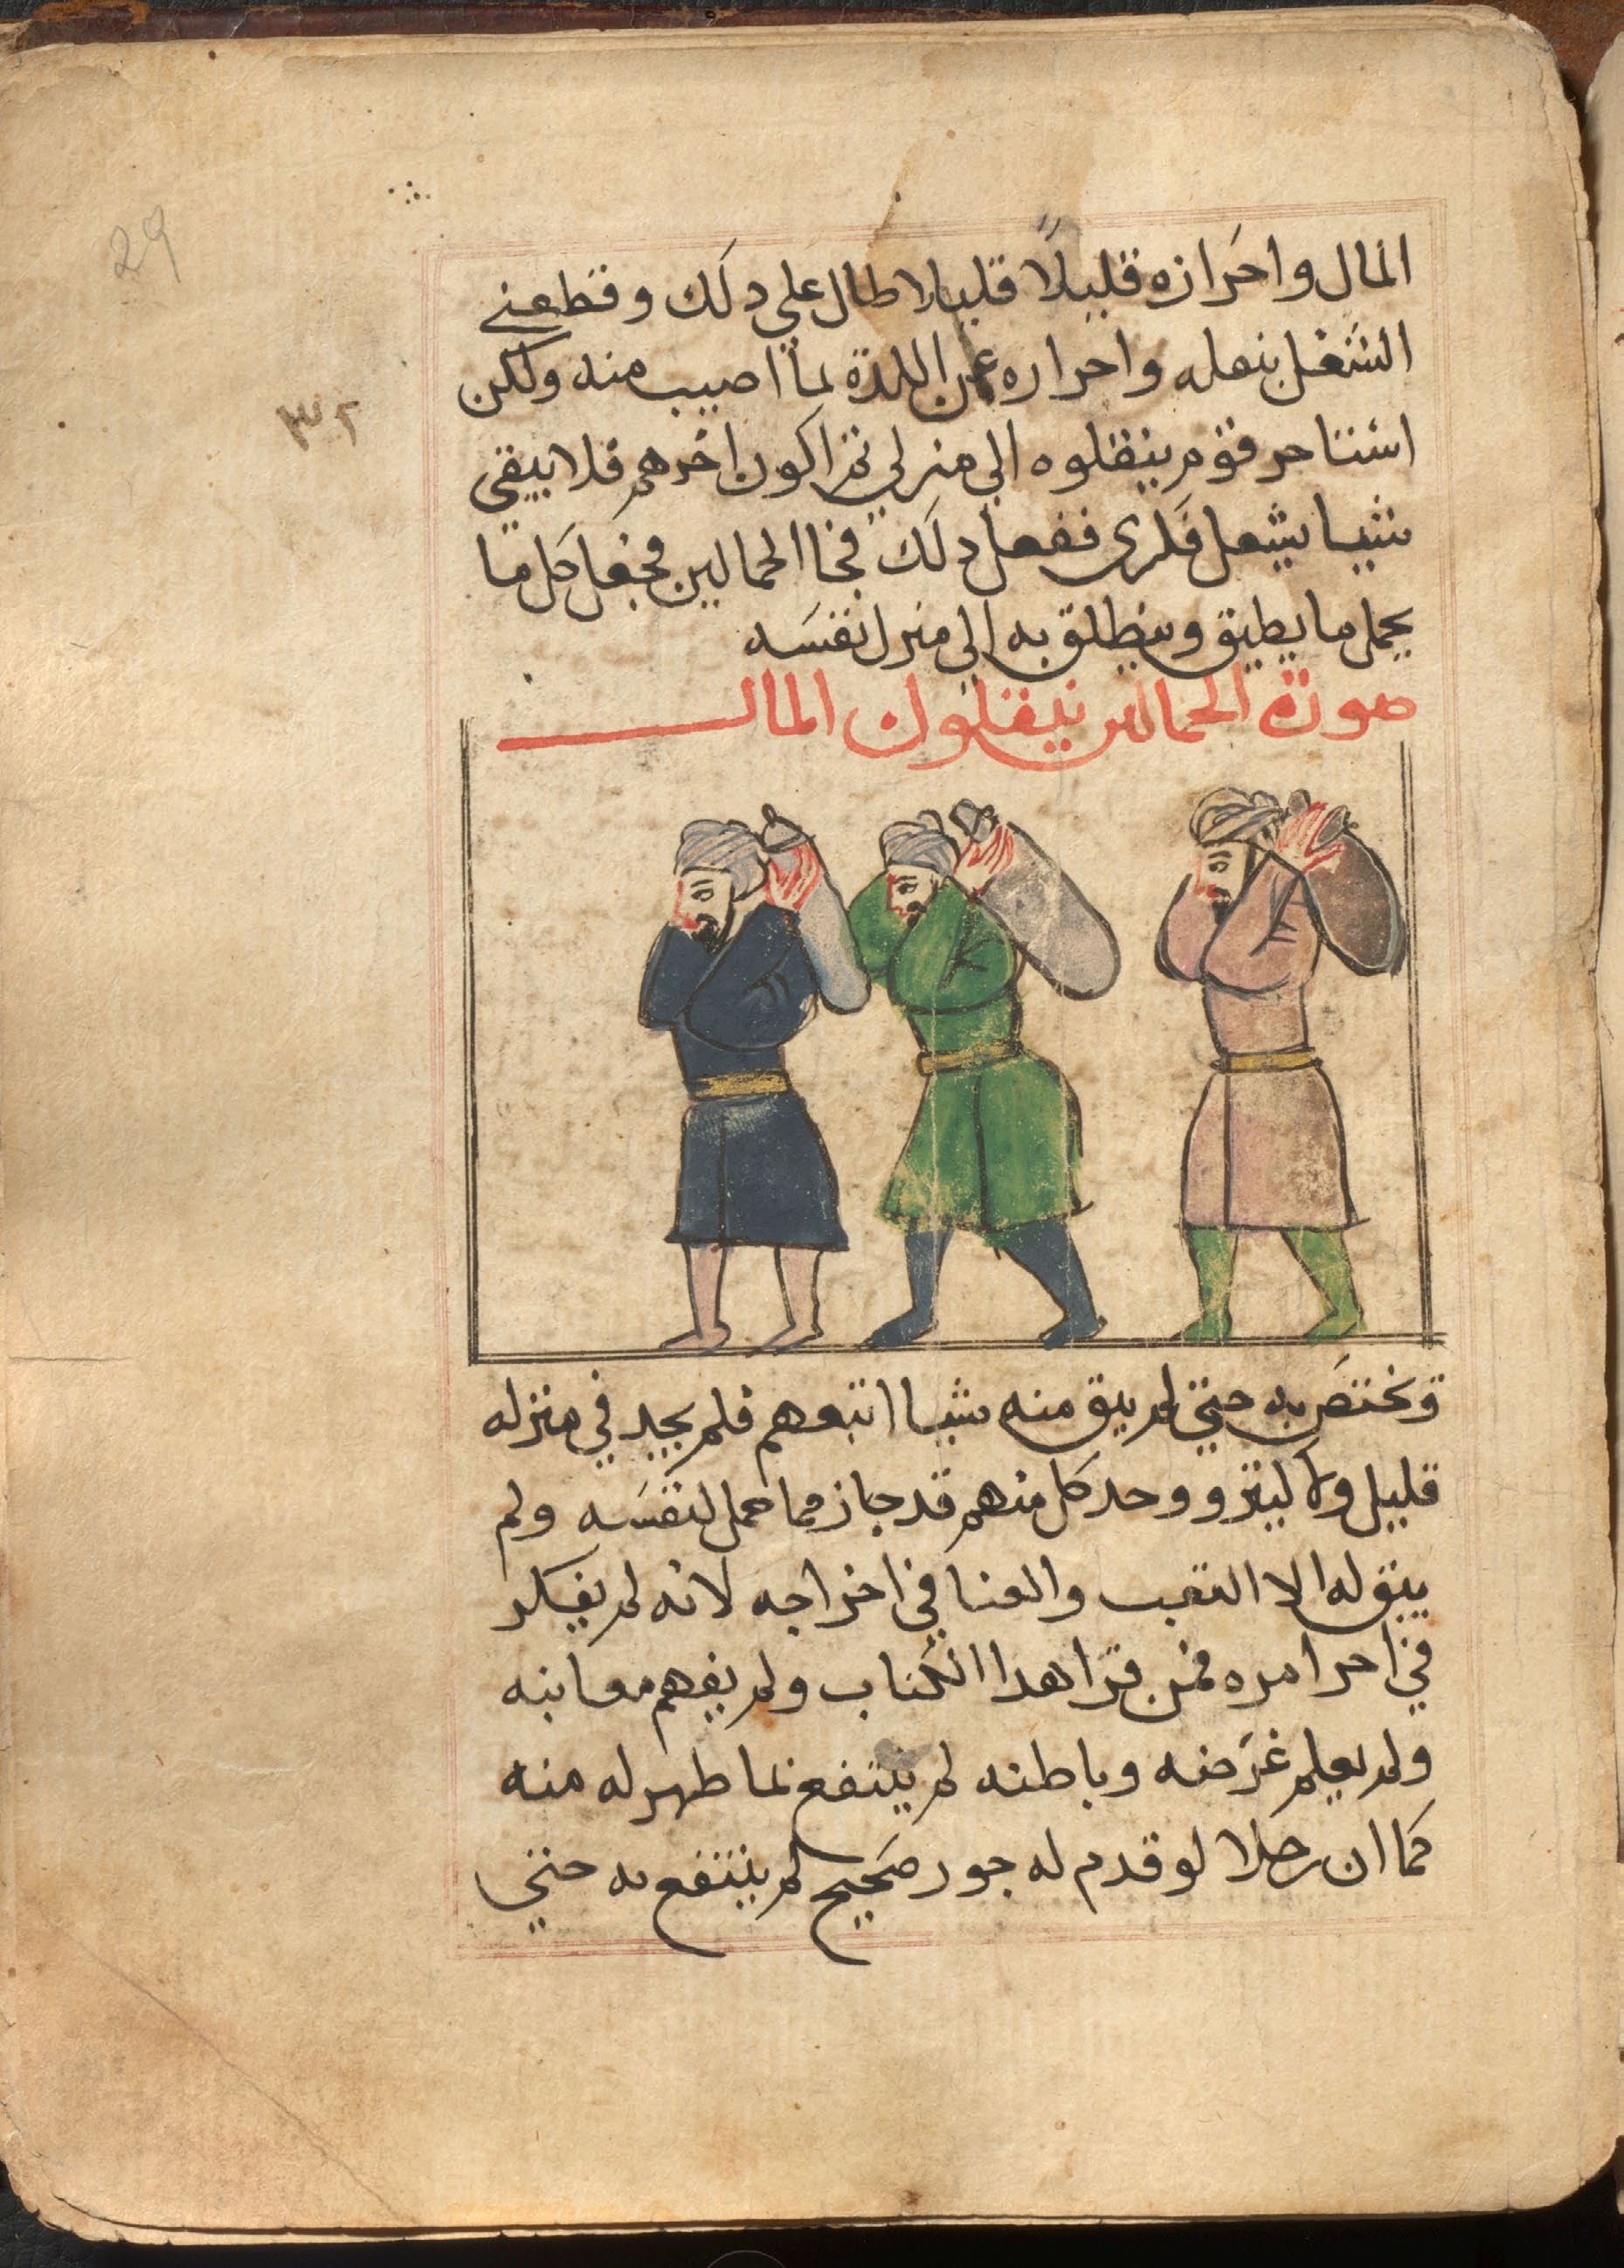 29
٣٢
المال واحرازه قليلاً قليلا طال على دلك وقطعني
الشغل بنقله واحراره عن اللدة لما اصيب منه ولكن
استاجر قوم ينقلوه الي منزلي ثم اكون اخرهم فلا يبقي
شيا يشعل فكري ففعل دلك فجا الحمالين فجعل كل ما
يحمل ما يطيق وينطلق به الي منزل نفسه
صورة الحمالين ينقلون المال
وتختص به حتي لم يبق منه شيا اتبعهم فلم يجد في منزله
قليل ولا كثير ووجد كل منهم قد جاز مما حمل لنفسه ولم
يبق له الا التعب والعنا في اخراجه لانه لم يفكر
في اخر امره فمن قرا هدا الكتاب ولم يفهم معانيه
ولم يعلم غرضه وباطنه لم ينتفع بما ظهر له منه
كما ان رجلا لو قدم له جوز صحيح لم ينتفع به حتي